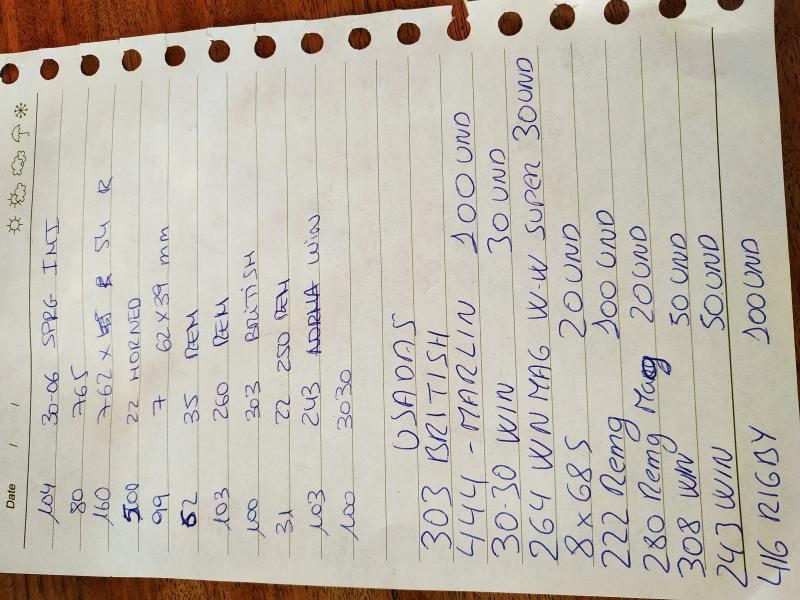 Date / /
104 30-06 SPRG IMI
80 765
160 762 x 54 R
500 22 HORNED
99 7 62x39 mm
52 35 REM
103 260 REM
100 303 BRITISH
31 22 250 REM
103 243 WIN
100 3030
USADAS
303 BRITISH
444 - MARLIN 100 UND
30-30 WIN 30 UND
264 WN MAG W-W SUPER 30UND
8x68S 20 UND
222 Remg 100 UND
280 Remg Mag 20UND
308 WIN 50 UND
243 WIN 50UND
416 RIGBY 100UND